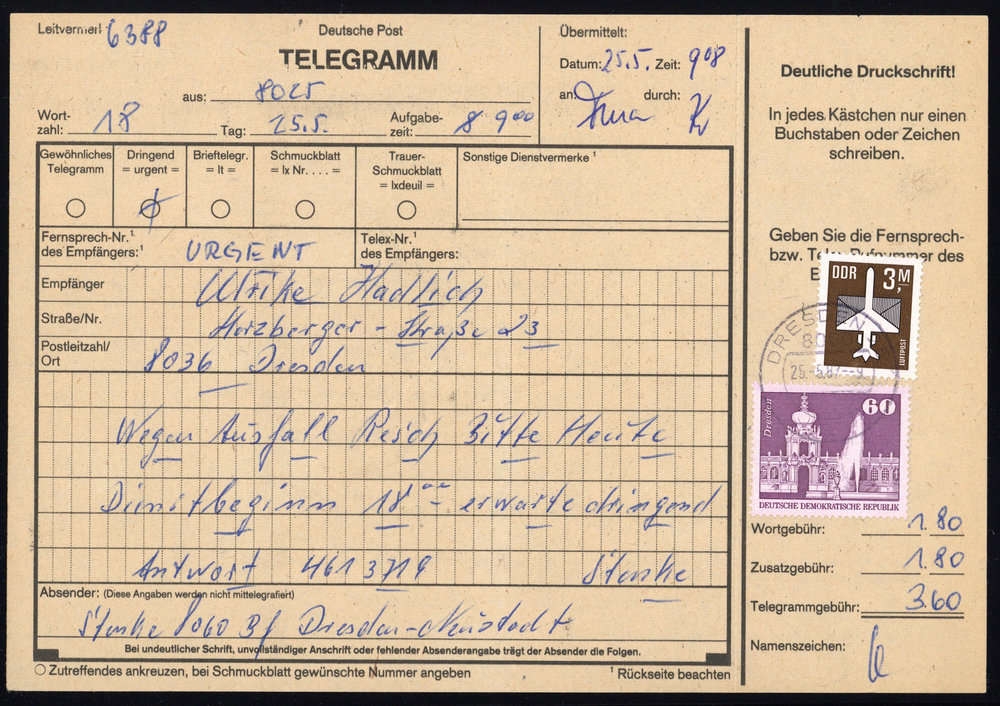 Leitvermerk 6388
Deutsche Post
TELEGRAMM
aus: 8025
Wort-
zahl: 18 Tag: 25.5. Aufgabe-
zeit: 8 9⁰⁰
Übermittelt:
Datum: 25.5. Zeit: 908
an: durch:
Gewöhnliches
Telegramm
Dringend
= urgent =
Brieftelegr.
= lt =
Schmuckblatt
= lx Nr. . . . =
Trauer-
Schmuckblatt
= lxdeuil =
Sonstige Dienstvermerke ¹
Fernsprech-Nr.¹
des Empfängers:¹ URGENT
Telex-Nr.¹
des Empfängers:
Empfänger Ulrike Hadlich
Straße/Nr. Herzberger - Straße 23
Postleitzahl/
Ort 8036 Dresden
Wegen Ausfall Resch Bitte Heute
Dienstbeginn 18⁰⁰ erwarte dringend
Antwort 4613719 Starke
Absender: (Diese Angaben werden nicht mittelegrafiert)
Starke 8060 Bf Dresden-Neustadt
Bei undeutlicher Schrift, unvollständiger Anschrift oder fehlender Absenderangabe trägt der Absender die Folgen.
Zutreffendes ankreuzen, bei Schmuckblatt gewünschte Nummer angeben
¹ Rückseite beachten
Deutliche Druckschrift!
In jedes Kästchen nur einen
Buchstaben oder Zeichen
schreiben.
Geben Sie die Fernsprech-
bzw. Telex-Rufnummer des
DDR 3,M
LUFTPOST
DRESDEN
25.-5.87.-9
Dresden 60
DEUTSCHE DEMOKRATISCHE REPUBLIK
Wortgebühr: 1.80
Zusatzgebühr: 1.80
Telegrammgebühr: 3.60
Namenszeichen: